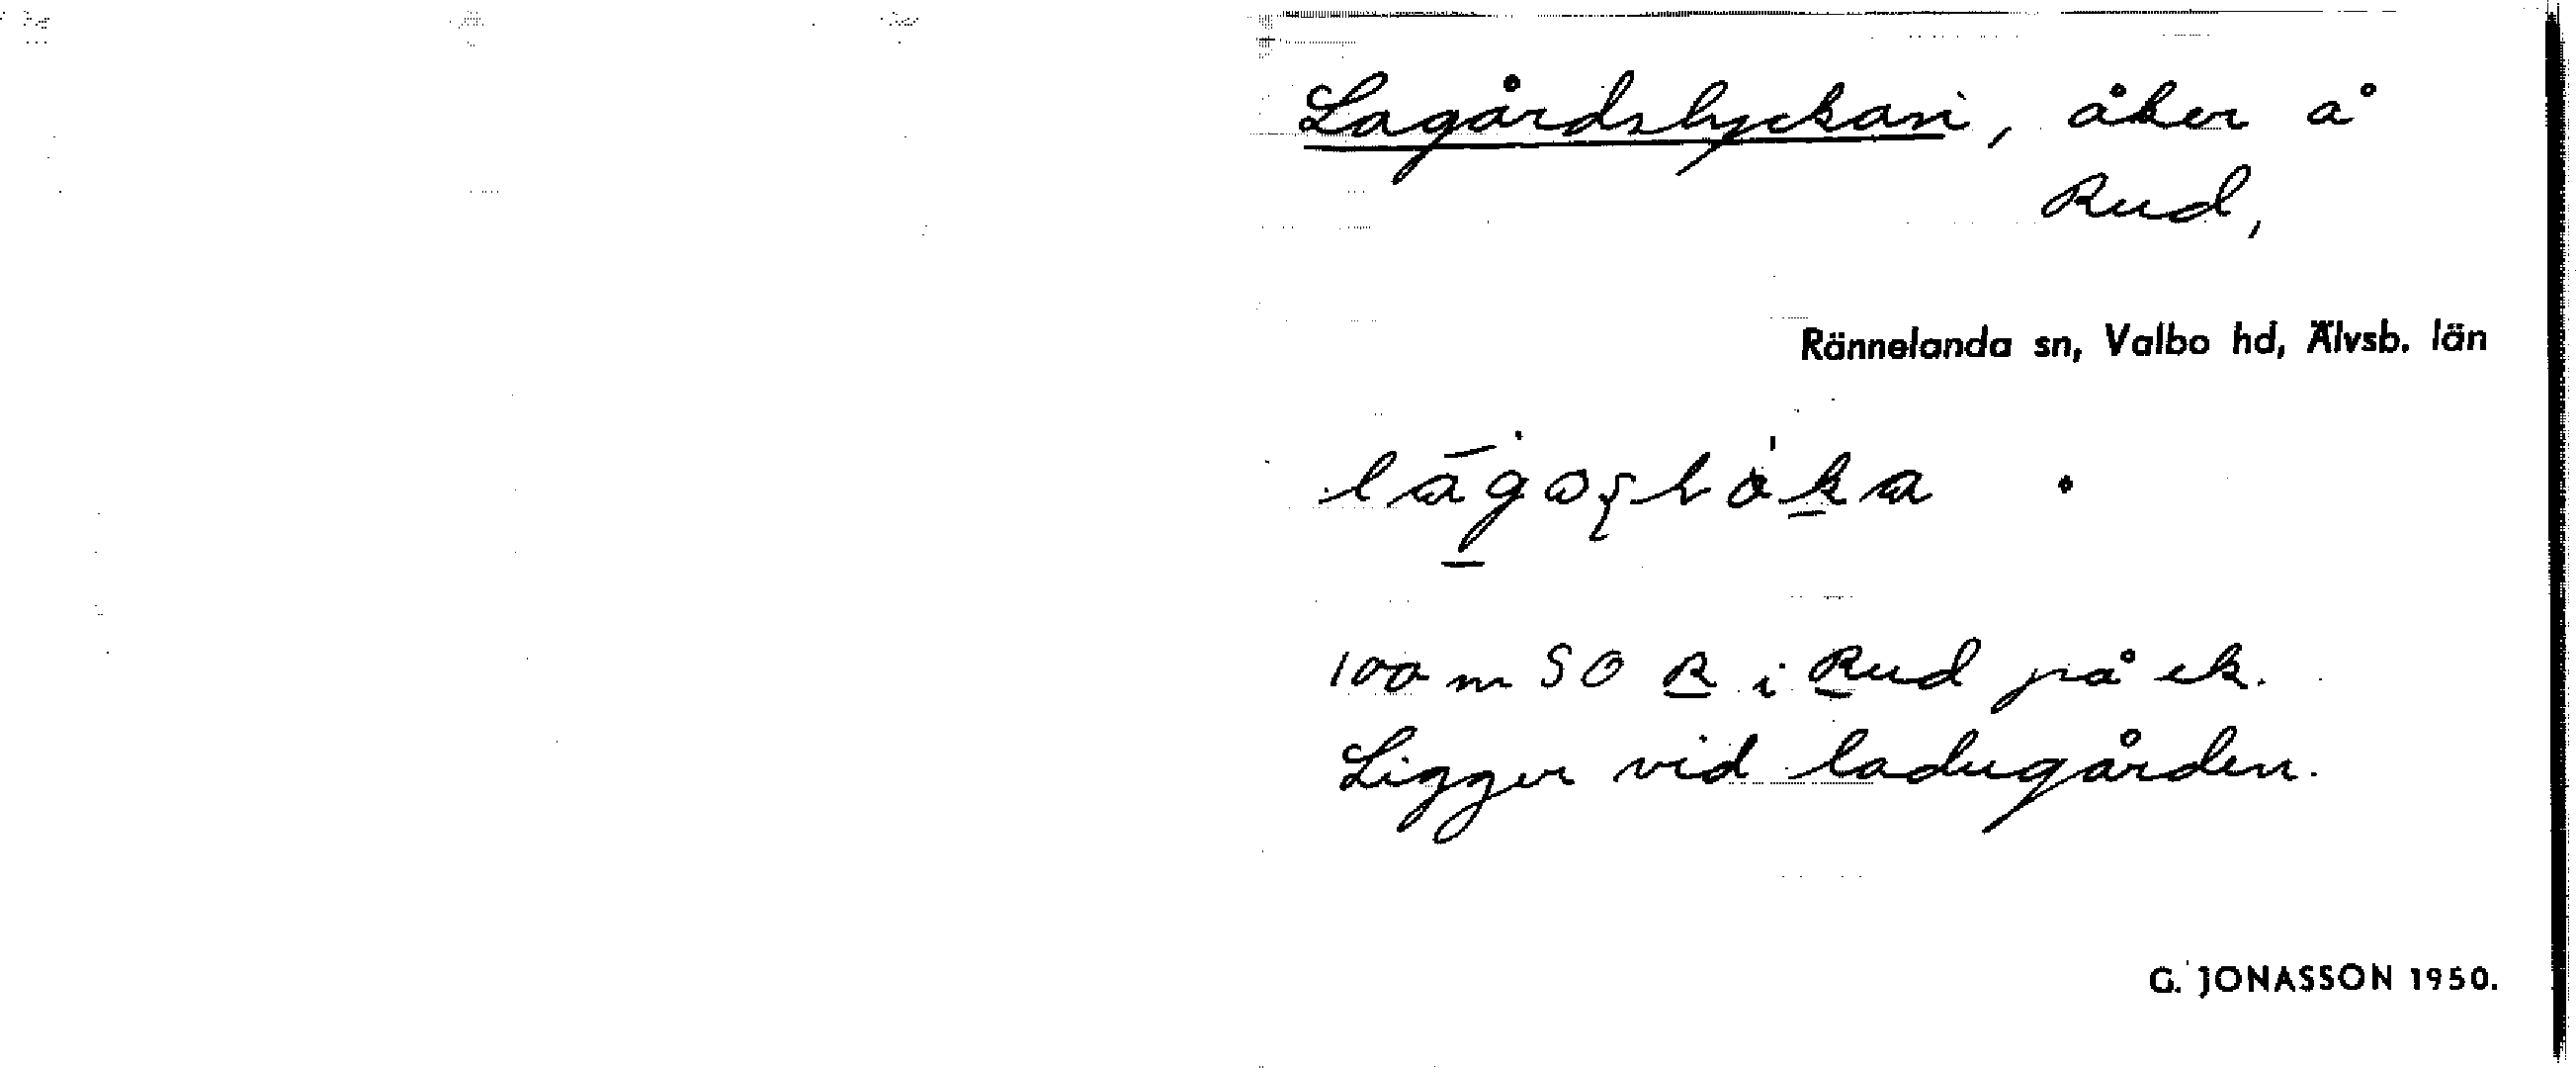 Lagårdslyckan, åker å
Rud,
Rännelanda sn, Valbo hd, Älvsb. län
100 m SO R i Rud på ek.
Ligger vid ladugården.
G. JONASSON 1950.